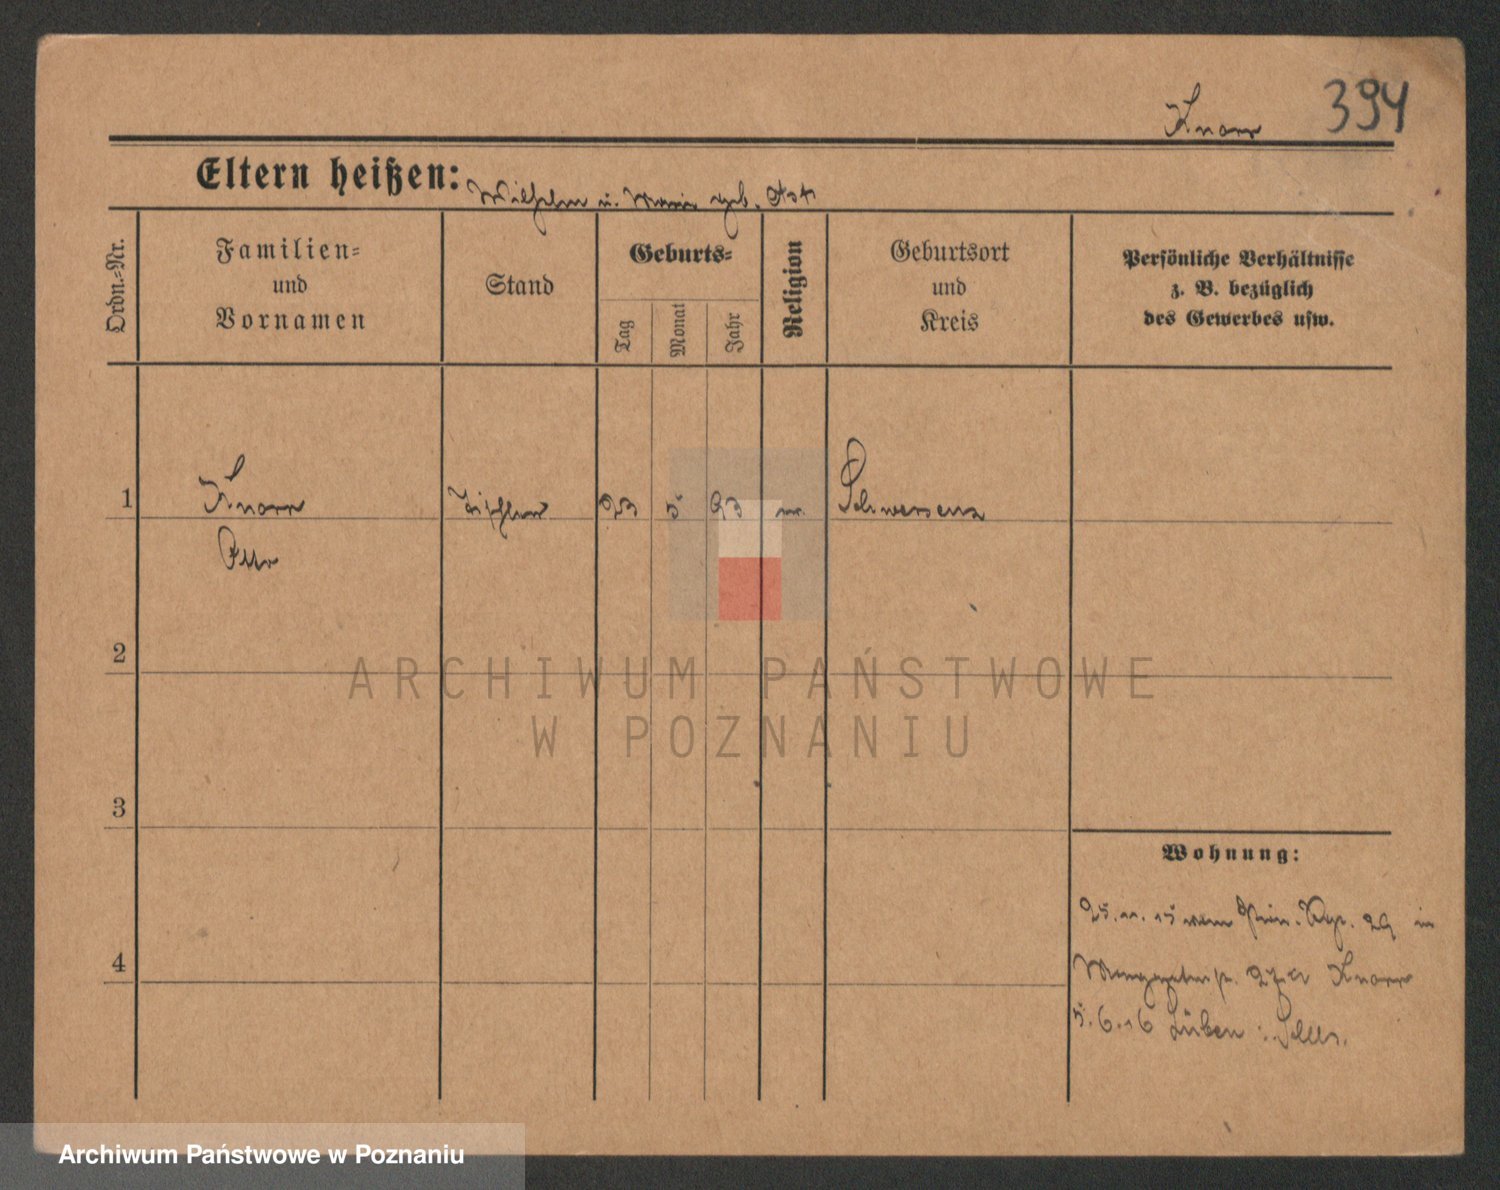 Knorr 394
Eltern heißen: Wilhelm u. Marie geb. Ast
Ordn.-Nr.
Familien-
und
Vornamen
Stand
Geburts-
Tag
Monat
Jahr
Religion
Geburtsort
und
Kreis
Persönliche Verhältnisse
z. B. bezüglich
des Gewerbes usw.
1 Knorr Tischler 23 5 93 ev. Schwersenz
Otto
2
ARCHIWUM PAŃSTWOWE
W POZNANIU
3
Wohnung:
25. 11. 15 vom 29 in
4
27 Knorr
5. 6. 16 Lüben i. Schles.
Archiwum Państwowe w Poznaniu